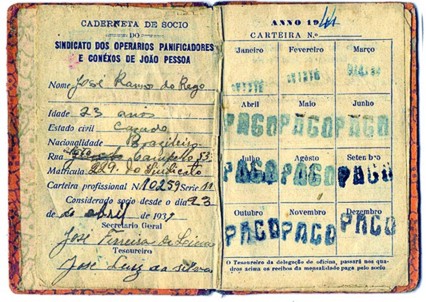 CADERNETA DE SOCIO
DO
SINDICATO DOS OPERARIOS PANIFICADORES
E CONÉXOS DE JOÃO PESSOA
Nome José Ramo do Rego
Idade 23 anos
Estado civil Casado
Nacionalidade Brasileiro
Rua
Matricula 229 do Sindicato
Carteira profissional N.º 10259 Serie 11
Considerado socio desde o dia 23
de abril de 1939
Secretaria Geral
José Ferreira de
Tesoureiro
José Luiz da Silva
ANNO 1944
CARTEIRA N.º
Janeiro Fevereiro Março
Abril Maio Junho
PAGO PAGO PAGO
Julho Agôsto Setembro
PAGO PAGO PAGO
Outubro Novembro Dezembro
PAGO PAGO PAGO
O Tesoureiro da delegação de oficina, passará nos
quadros acima os recibos da mensalidade paga pelo socio